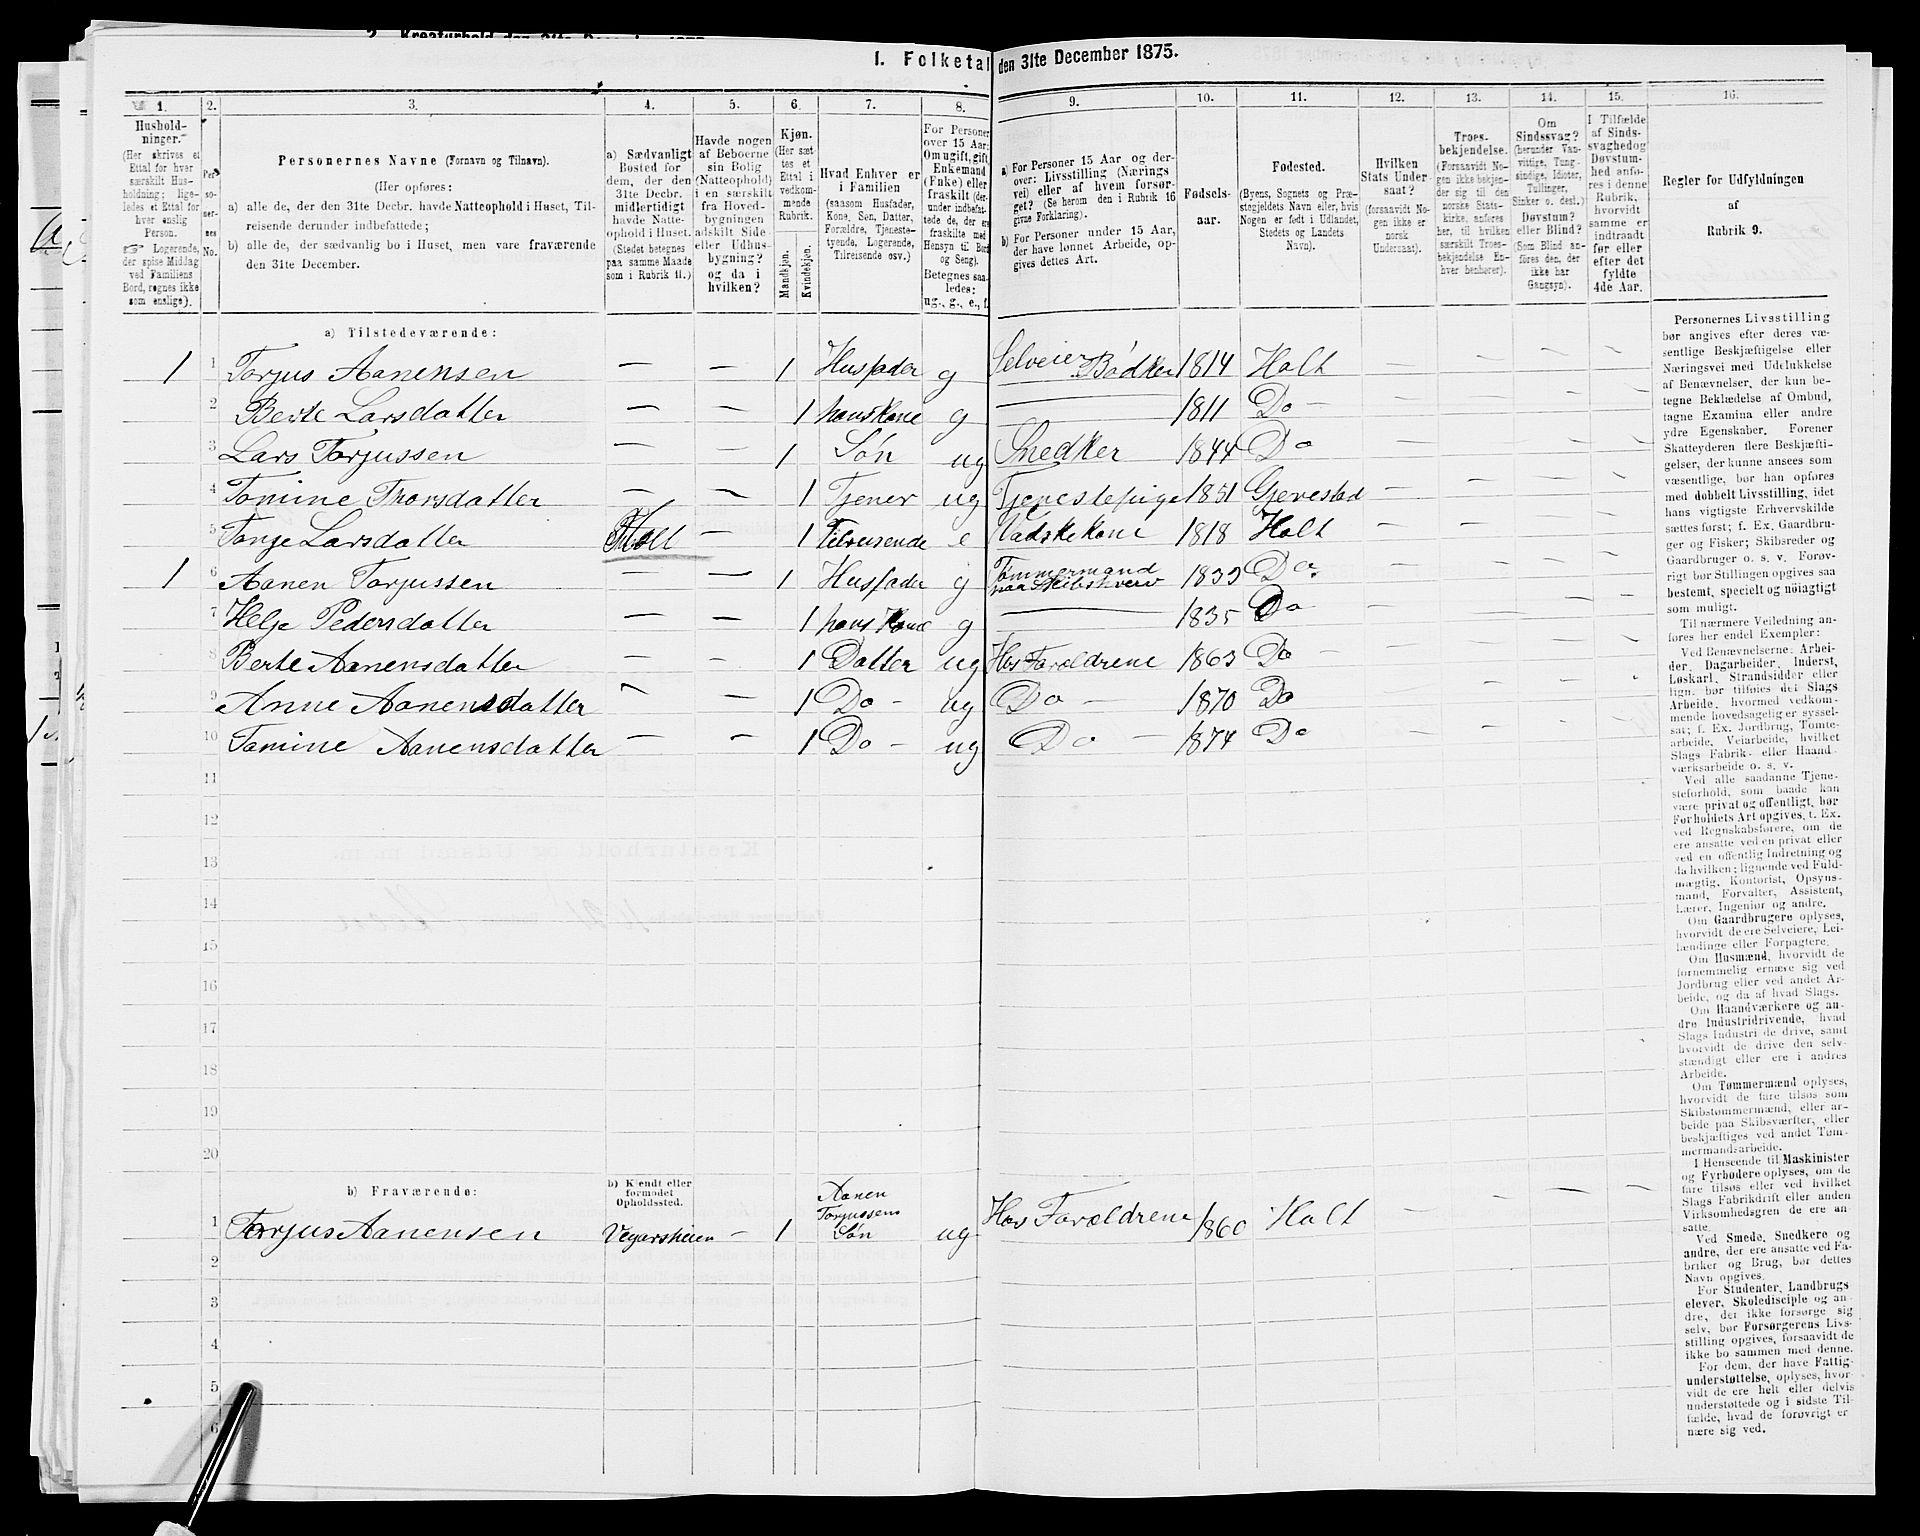 2. Kreaturhold den 31te December 1875
I. Folketal den 31te December 1875.
1. 2. 3. 4. 5. 6. 7. 8. 9. 10. 11. 12. 13. 14. 15. 16.
Husholdninger.
(Her skrives et
Ettal for hver
særskilt Husholdning; ligeledes et Ettal for
hver enslig
Person.
☞ Logerende,
der spise Middag
ved Familiens
Bord, regnes ikke
som enslige).
Personernes No.
Personernes Navne (Fornavn og Tilnavn).
(Her opføres:
a) alle de, der den 31te Decbr. havde Natteophold i Huset, Tilreisende derunder indbefattede;
b) alle de, der sædvanlig bo i Huset, men vare fraværende
den 31te December.
a) Sædvanligt
Bosted for
dem, der den
31te Decbr.
midlertidigt
havde Natteophold i Huset.
(Stedet betegnes
paa samme Maade
som i Rubrik 11.)
Havde nogen
af Beboerne
sin Bolig
(Natteophold)
i en særskilt
fra Hovedbygningen
adskilt Side-
eller Udhusbygning?
og da i
hvilken?
Kjøn.
(Her sættes et
Ettal i
vedkommende
Rubrik.
Mandkjøn.
Kvindekjøn.
Hvad Enhver er
i Familien
(saasom Husfader,
Kone, Søn, Datter,
Forældre, Tjenestetyende, Logerende,
Tilreisende osv.)
For Personer
over 15 Aar:
Om ugift, gift,
Enkemand
(Enke) eller
fraskilt (derunder indbefattede de, der ere
fraskilte med
Hensyn til Bord
og Seng).
Betegnes saaledes:
ug., g., e., f.
a) For Personer 15 Aar og derover: Livsstilling (Næringsvei) eller af hvem forsørget? (Se herom den i Rubrik 16
givne Forklaring).
b) For Personer under 15 Aar,
der have lønnet Arbeide, opgives dettes Art.
Fødselsaar.
Fødested.
(Byens, Sognets og Præstegjeldets Navn eller, hvis
Nogen er født i Udlandet,
Stedets og Landets
Navn).
Hvilken
Stats Undersaat?
(forsaavidt Nogen ikke er
norsk
Undersaat).
Troesbekjendelse.
(Forsaavidt Nogen ikke bekjender sig til den
norske Statskirke, anføres
her, til hvilken
særskilt Troesbekjendelse Enhver henhører).
Om
Sindssvag?
(herunder Vanvittige, Tungsindige, Idioter,
Tullinger,
Sinker o. desl.)
Døvstum?
eller Blind?
(Som Blind anføres den, der
ikke har
Gangsyn).
I Tilfælde
af Sindssvaghed og
Døvstumhed anføres i denne
Rubrik,
hvorvidt
samme er
indtraadt
før eller
efter det
fyldte
4de Aar.
Regler for Udfyldningen
af
Rubrik 9.
a) Tilstedeværende:
1 1 Torjus Aanensen — — 1 Husfader g Selveier Bødker 1814 Holt — — — —
2 Berte Larsdatter — — 1 hans Kone g — 1811 Do — — — — —
3 Lars Torjussen — — 1 Søn ug Snedker 1844 Do — — — —
4 Tomine Thorsdatter — — 1 Tjener ug Tjenestepige 1851 Gjerestad — — — —
5 Tonje Larsdatter Holt — 1 Tilreisende e Vadskekone 1818 Holt — — — —
1 6 Aanen Torjussen — — 1 Husfader g Tømmermand
paa Skibsverv 1833 Do. — — — —
7 Helje Pedersdatter — — 1 hans Kone g — 1835 Do — — — —
8 Berte Aanensdatter — — 1 Datter ug Hos Foroldrene 1863 Do — — — — —
9 Anne Aanensdatter — — 1 Do — ug Do — 1870 Do — — — —
10 Tomine Aanensdatter — — 1 Do — ug Do — 1874 Do — — — —
11
12
13
14
15
16
17
18
19
20
b) Fraværende:
b) Kjendt eller
formodet
Opholdssted.
1 Torjus Aanensen Vegarsheien — 1 Aanen
Torjussens
Søn ug Hos Foroldrene 1860 Holt — — — —
2
3
4
5
6
Personernes Livsstilling
bør angives efter deres væsentlige Beskjæftigelse eller
Næringsvei med Udelukkelse
af Benævnelser, der kun betegne Beklædelse af Ombud,
tagne Examina eller andre
ydre Egenskaber. Forener
Skatteyderen flere Beskjæftigelser, der kunne ansees som
væsentlige, bør han opføres
med dobbelt Livsstilling, idet
hans vigtigste Erhvervskilde
sættes først; f. Ex. Gaardbruger og Fisker; Skibsreder og
Gaardbruger o. s. v. Forøvrigt bør Stillingen opgives saa
bestemt, specielt og nöiagtigt
som muligt.
Til nærmere Veiledning anføres her endel Exempler:
Ved Benævnelserne: Arbeider, Dagarbeider, Inderst,
Løskarl, Strandsidder eller
lign. bør tilføies det Slags
Arbeide, hvormed vedkommende hovedsagelig er sysselsat; f. Ex. Jordbrug, Tomtearbeide, Veiarbeide, hvilket
Slags Fabrik- eller Haandværksarbeide o. s. v.
Ved alle saadanne Tjenesteforhold, som baade kan
være privat og offentligt, bør
Forholdets Art opgives, t. Ex.
ved Regnskabsførere, om de
ere ansatte ved en privat eller
ved en offentlig Indretning og
da hvilken; lignende ved Fuldmægtig, Kontorist, Opsynsmand, Forvalter, Assistent,
Lærer, Ingeniør og andre.
Om Gaardbrugere oplyses,
hvorvidt de ere Selveiere, Leilændinge eller Forpagtere.
Om Husmænd, hvorvidt de
fornemmelig ernære sig ved
Jordbrug eller ved andet Arbeide, og da af hvad Slags.
Om Haandværkere og andre Industridrivende, hvad
Slags Industri de drive, samt
hvorvidt de drive den selvstændigt eller ere i andres
Arbeide.
Om Tømmermænd oplyses,
hvorvidt de fare tilsøs som
Skibstømmermænd, eller arbeide paa Skibsværfter, eller
beskjæftiges ved andet Tømmermandsarbeide.
I Henseende til Maskinister
og Fyrbødere oplyses, om de
fare tilsøs eller ved hvilket
Slags Fabrikdrift eller anden
Virksomhedsgren de ere ansatte.
Ved Smede, Snedkere og
andre, der ere ansatte ved Fabriker og Brug, bør dettes
Navn opgives.
For Studenter, Landbrugselever, Skoledisciple og andre, der ikke forsørge sig
selv, bør Forsørgerens Livsstilling opgives, forsaavidt de
ikke bo sammen med denne.
For dem, der have Fattigunderstøttelse, oplyses, hvorvidt de ere helt eller delvis
understøttede og i sidste Tilfælde, hvad de forøvrigt ere
nære sig ved.